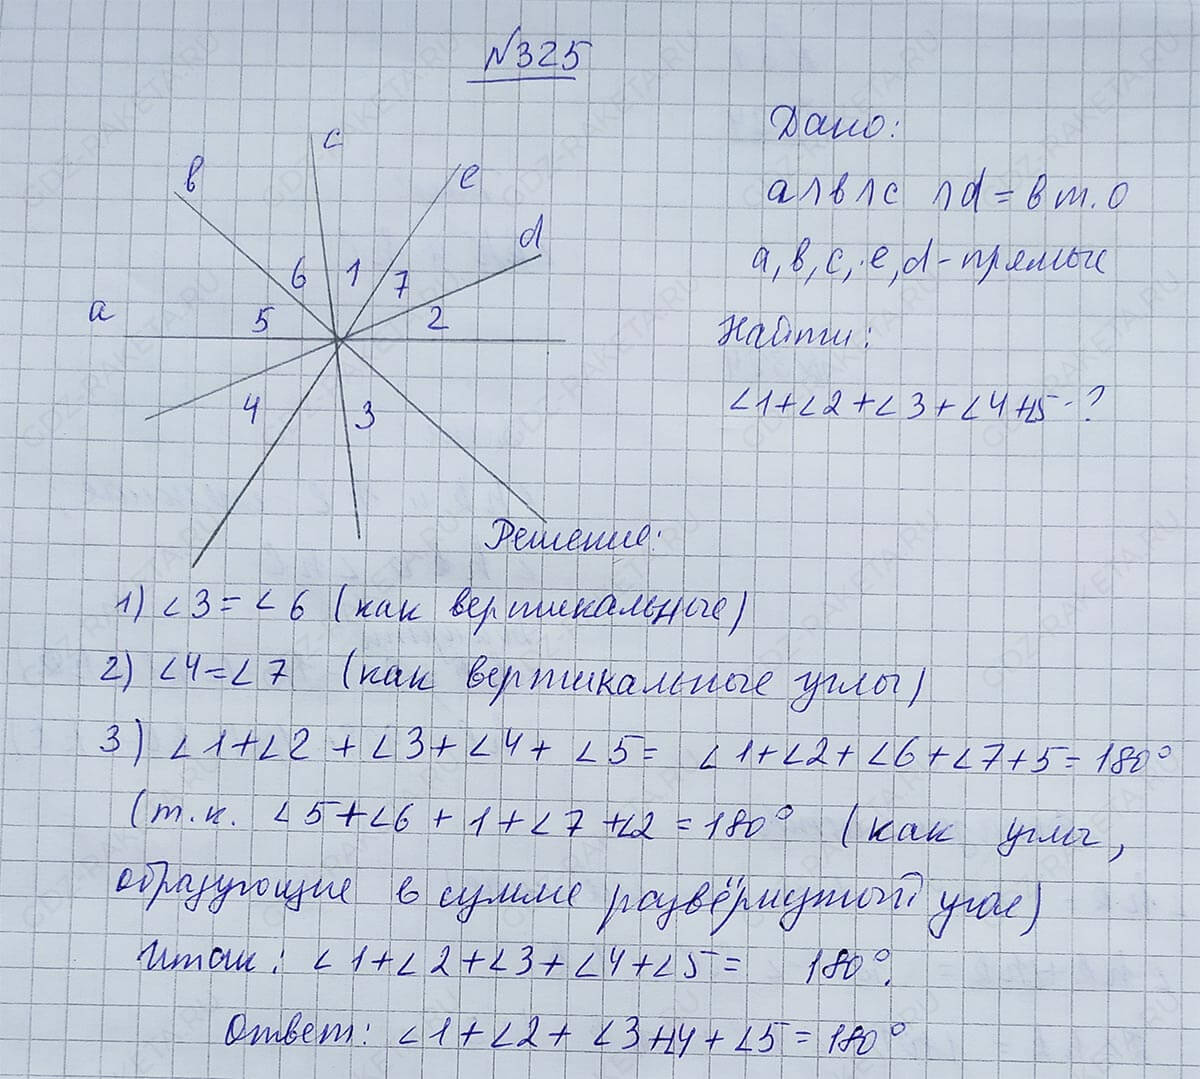 №325
c
в
e
d
6 1 7
a
5 2
4 3
Дано:
a∩в∩c ∩d = в т. О
a, в, c, e, d - прямые
Найти:
∠1+∠2+∠3+∠4+∠5-?
Решение:
1) ∠3=∠6 (как вертикальные)
2) ∠4=∠7 (как вертикальные углы)
3) ∠1+∠2+∠3+∠4+∠5= ∠1+∠2+∠6+∠7+5=180°
(т.к. ∠5+∠6+1+∠7+∠2=180° (как углы,
образующие в сумме развёрнутый угол)
Итак: ∠1+∠2+∠3+∠4+∠5= 180°.
Ответ: ∠1+∠2+∠3+∠4+∠5=180°
GDZ-RAKETA.RU